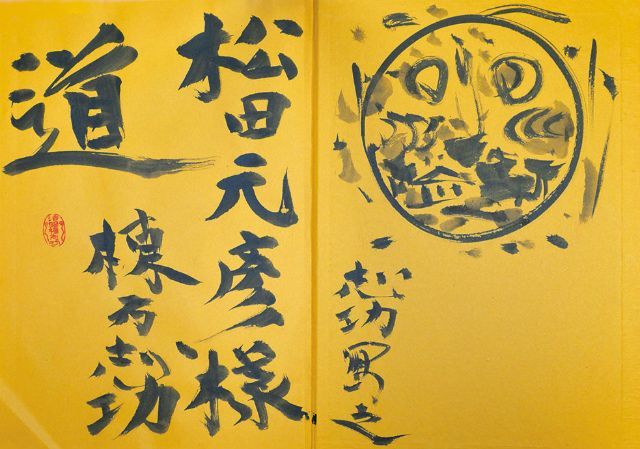 松田元彦様
道
棟方志功
志功